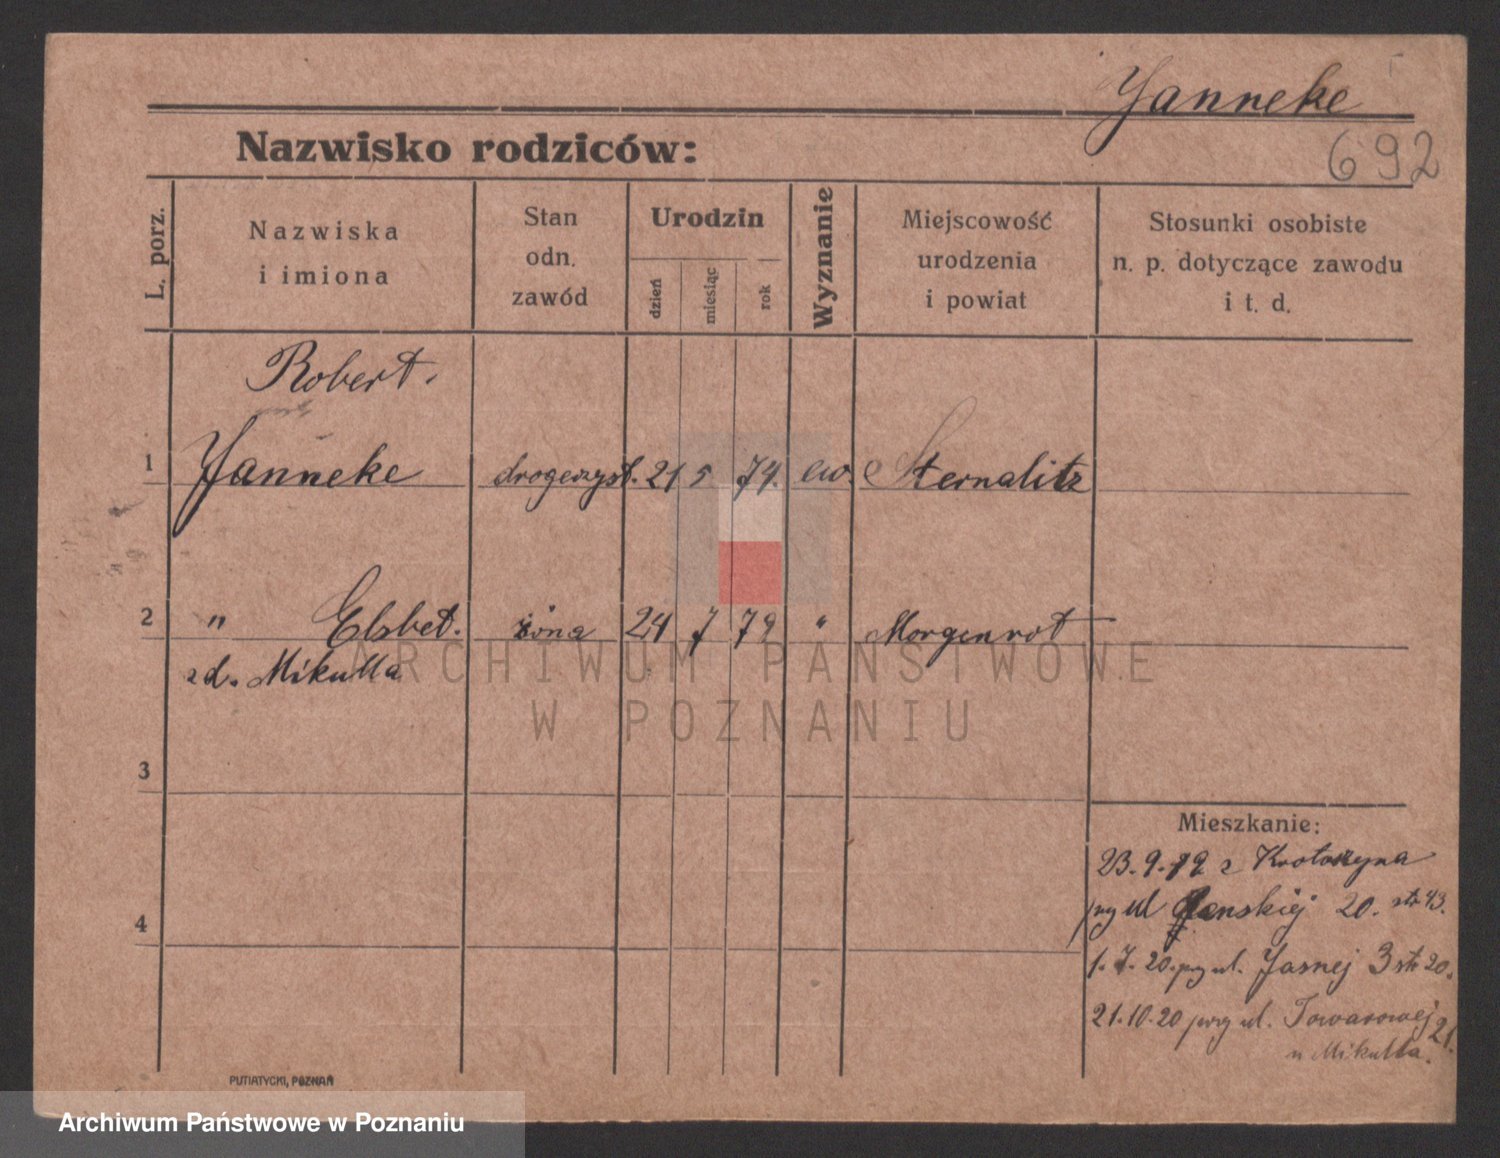 Janneke
692
Nazwisko rodziców:
L. porz.
Nazwiska
i imiona
Stan
odn.
zawód
Urodzin
dzień
miesiąc
rok
Wyznanie
Miejscowość
urodzenia
i powiat
Stosunki osobiste
n. p. dotyczące zawodu
i t. d.
Robert.
1 Janneke drogerzyst. 21 5 74. ew. Sternalitz
2 " Elsbet. żona 24 7 79 " Morgenrot
zd. Mikulla
3
4
Mieszkanie:
23.9.19 z Krotoszyna
przy ul 20. str 43.
1.7.20. przy ul. Jasnej 3 str 20.
21.10.20 przy ul. Towarowej 21.
u Mikulla.
PUTIATYCKI, POZNAŃ
ARCHIWUM PAŃSTWOWE
W POZNANIU
Archiwum Państwowe w Poznaniu